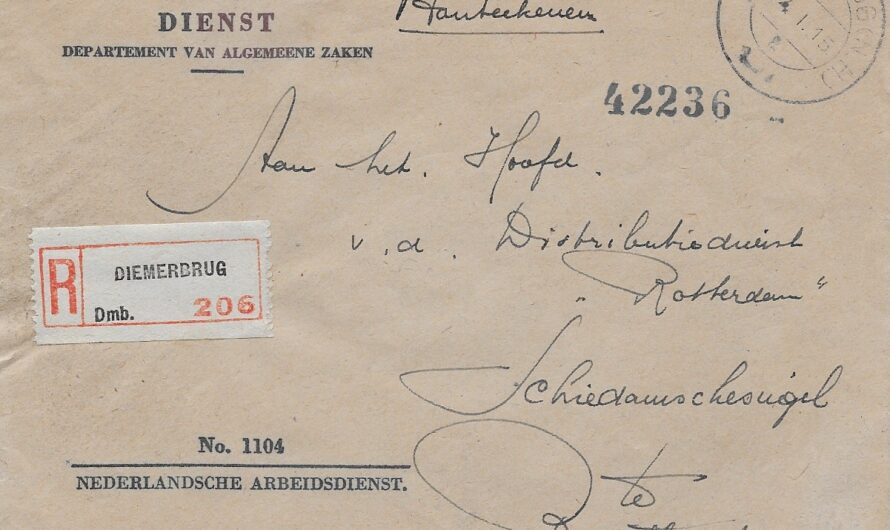 DIENST
DEPARTEMENT VAN ALGEMEENE ZAKEN
Aanteekenen
42236
Aan het. Hoofd.
v.d. Distributiedienst
„Rotterdam“
Schiedamschesingel
te
R
DIEMERBRUG
Dmb. 206
No. 1104
NEDERLANDSCHE ARBEIDSDIENST.